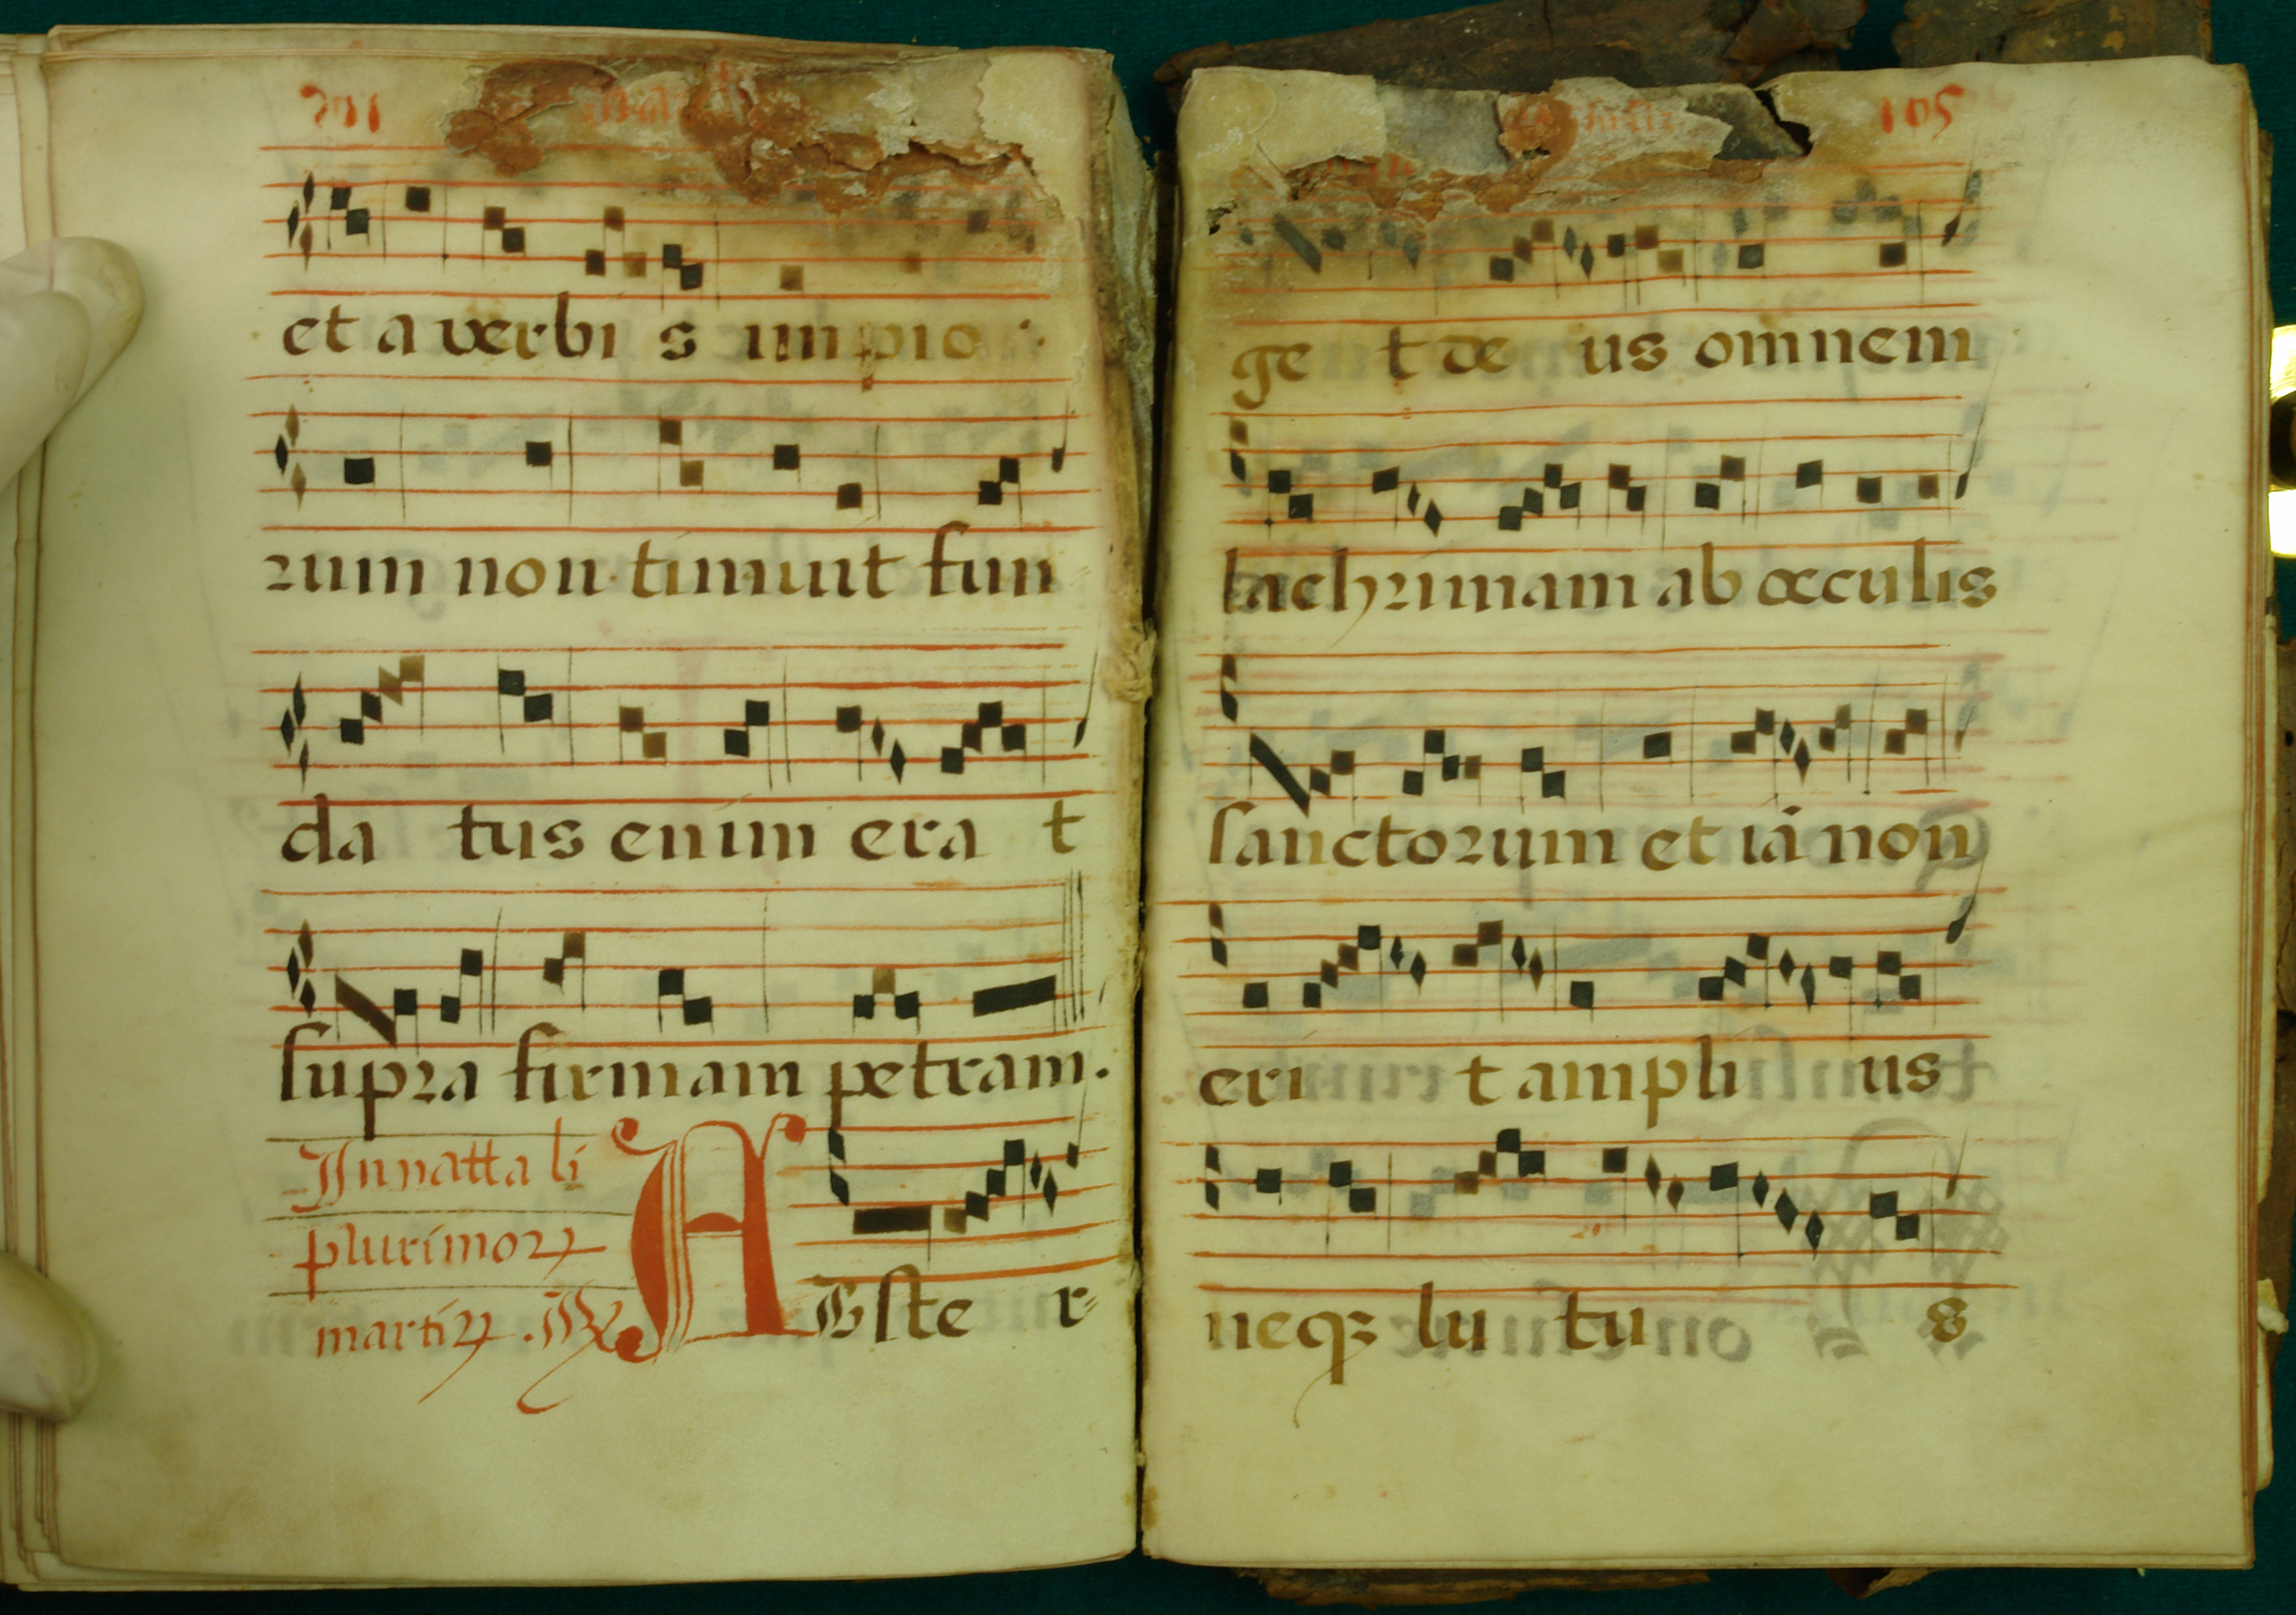 et a verbi s impio
rum non timuit fun
da tus enim era t
supra firmam petram.
In natta li
plurimoꝝ
martiꝝ . ℟
ABste r
105
ge t de us omnem
lachrimam ab occulis
sanctorum et iā non
eri t ampli us
neqꝫ lu tu s